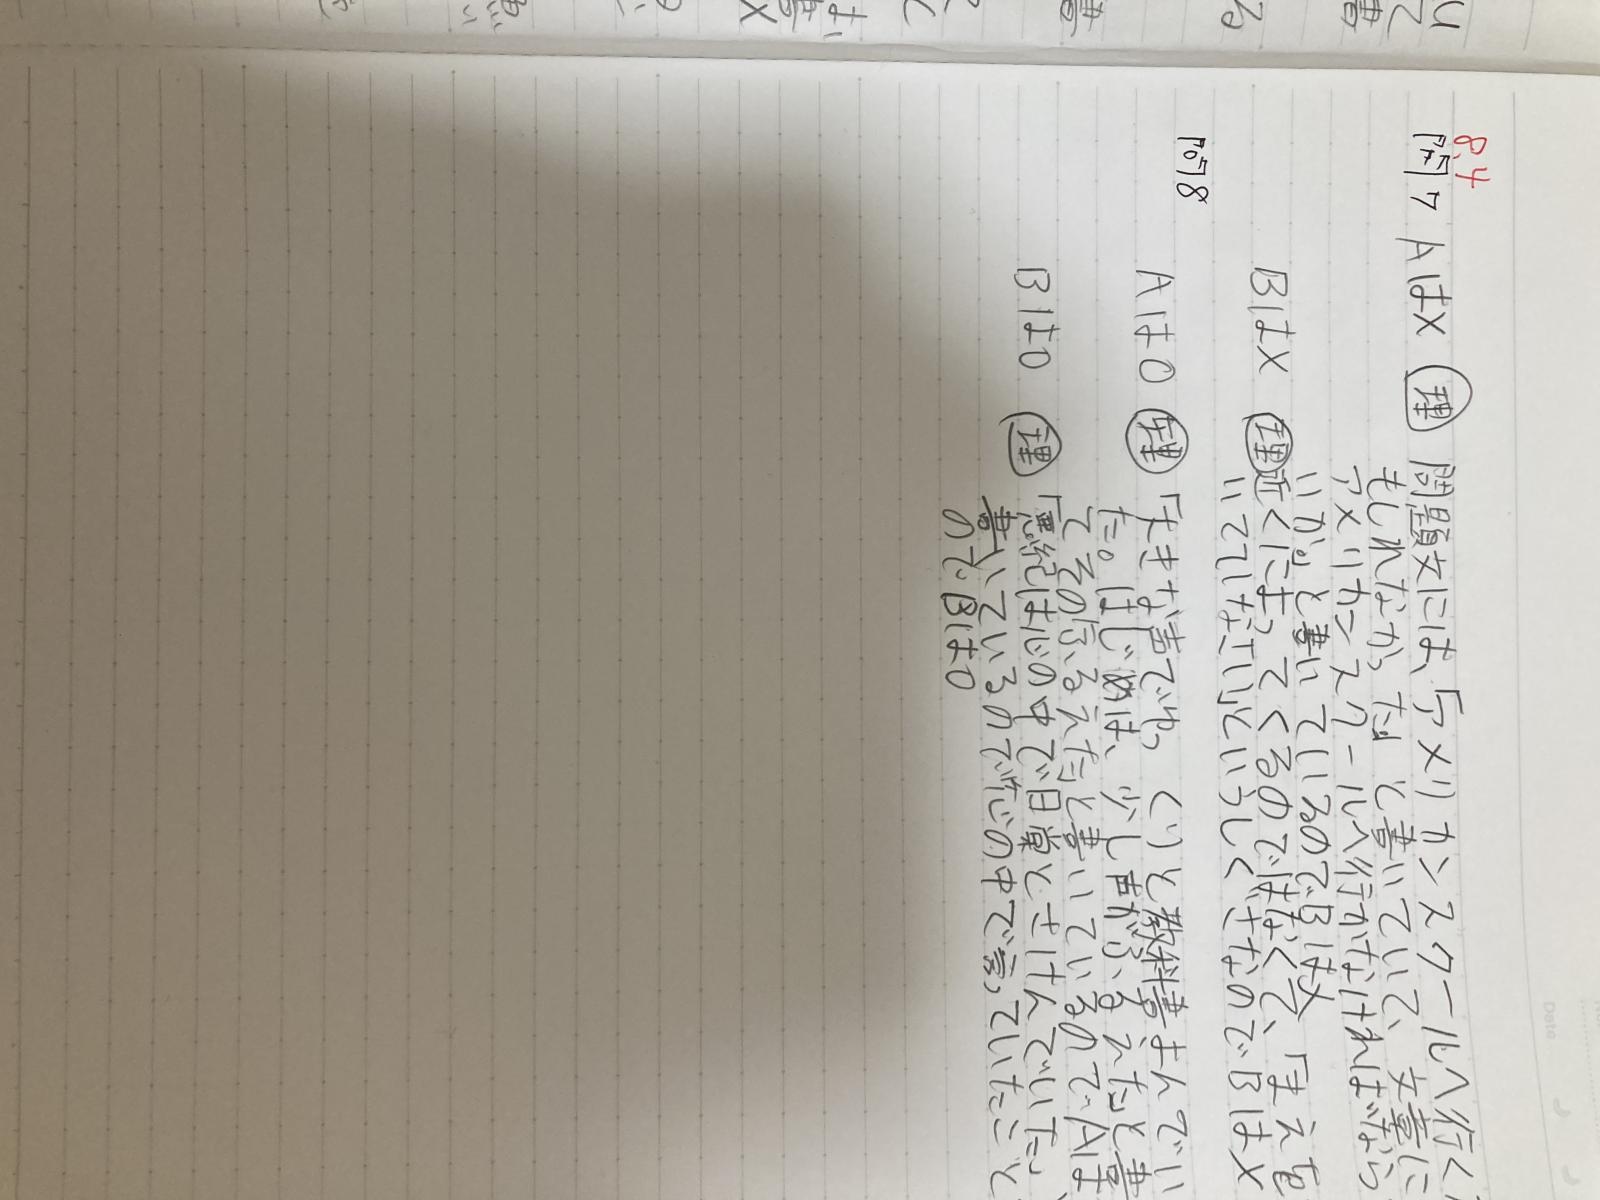 8.4
問7 Aは× 理 問題文には、「アメリカンスクールへ行く
もしれなかった」と書いていて、文章に
アメリカンスクールへ行かなければなら
いか。」と書いているのでBは×
Bは× 理 近くによってくるのではなくて、「まえを
いてしなさい」というしぐさなのでBは×
問8
Aは○ 理 「大きな声でゆっくりと教科書よんでい
た。はじめは、少し声がふるえた」と書
てそのふるえたと書いているのでAは
Bは○ 理 「恵紀は心の中で日覚とさけんでいた」
書いているので心の中で言っていたこと
のでBは○
Date